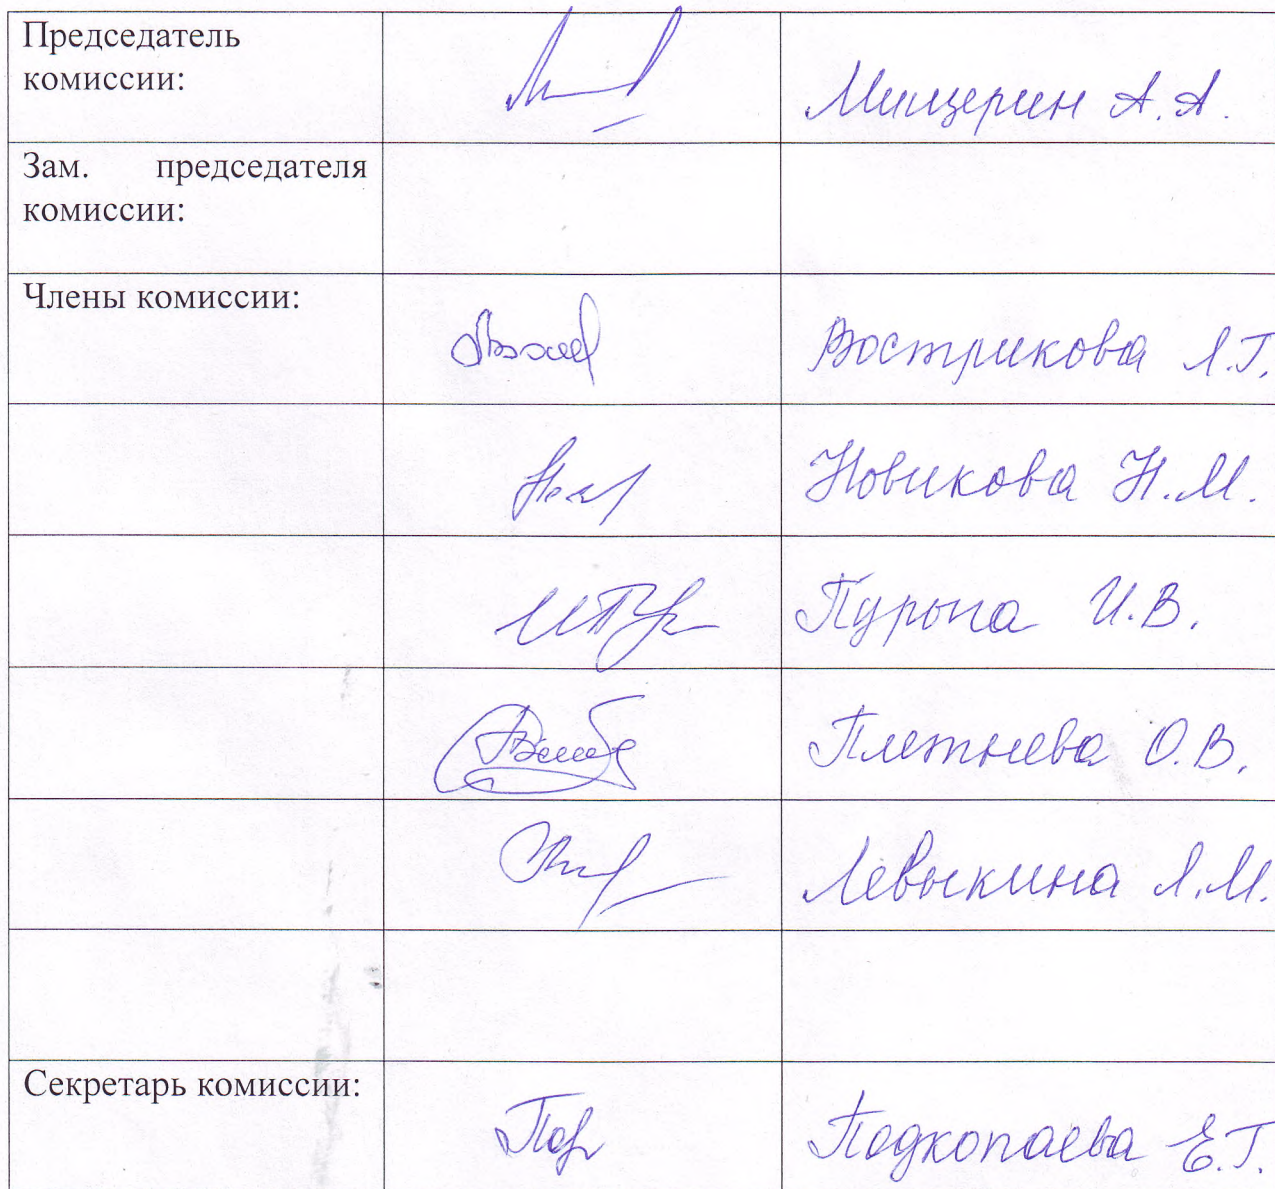 Председатель
комиссии:
Мищерин А.А.
Зам. председателя
комиссии:
Члены комиссии:
Вострикова Л.Г.
Новикова Н.М.
Пурыга И.В.
Плетнева О.В.
Левыкина Л.М.
Секретарь комиссии:
Подкопаева Е.Г.